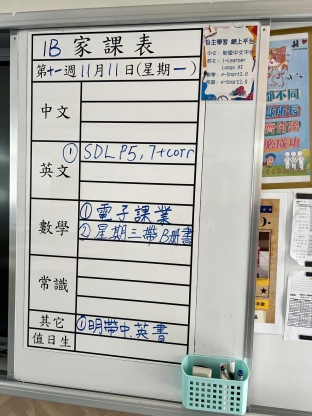 1B 家課表
第十一週11月11日(星期一)
中文
英文
① SDL P5, 7+corr
數學
① 電子課業
② 星期三帶B冊書
常識
其它
① 明帶中, 英書
值日生
自主學習 網上平台
中文:智愛中文平台
英文:i-Learner